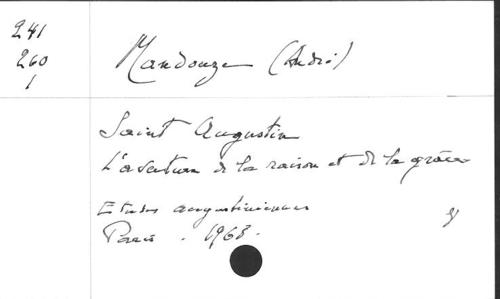 241
260
1
Mandouze (André)
Saint Augustin
L'aventure de la raison et de la grâce
Etudes augustiniennes
Paris. 1968.